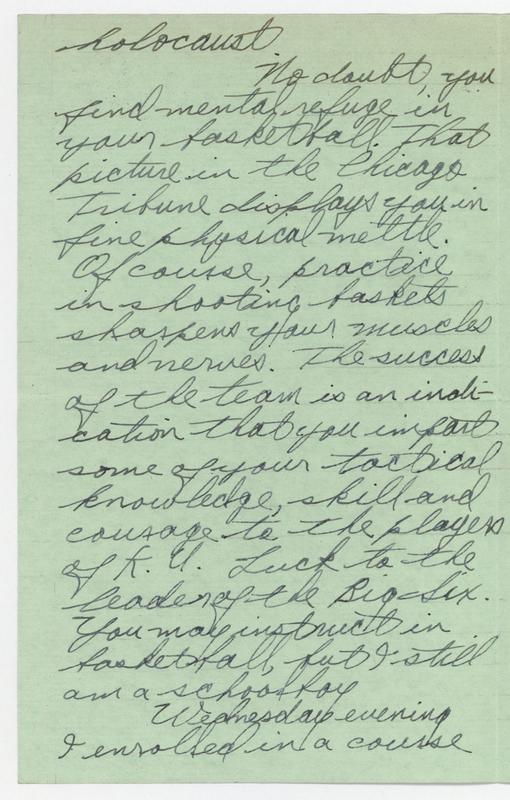 holocaust.
No doubt, you
find mental refuge in
your basketball. That
picture in the Chicago
Tribune displays you in
fine physical mettle.
Of course, practice
in shooting baskets
sharpens your muscles
and nerves. The success
of the team is an indi-
cation that you impart
some of your tactical
knowledge, skill and
courage to the players
of K. U. Luck to the
leader of the Big-Six.
You may instruct in
basketball, but I still
am a schoolboy
Wednesday evening
I enrolled in a course